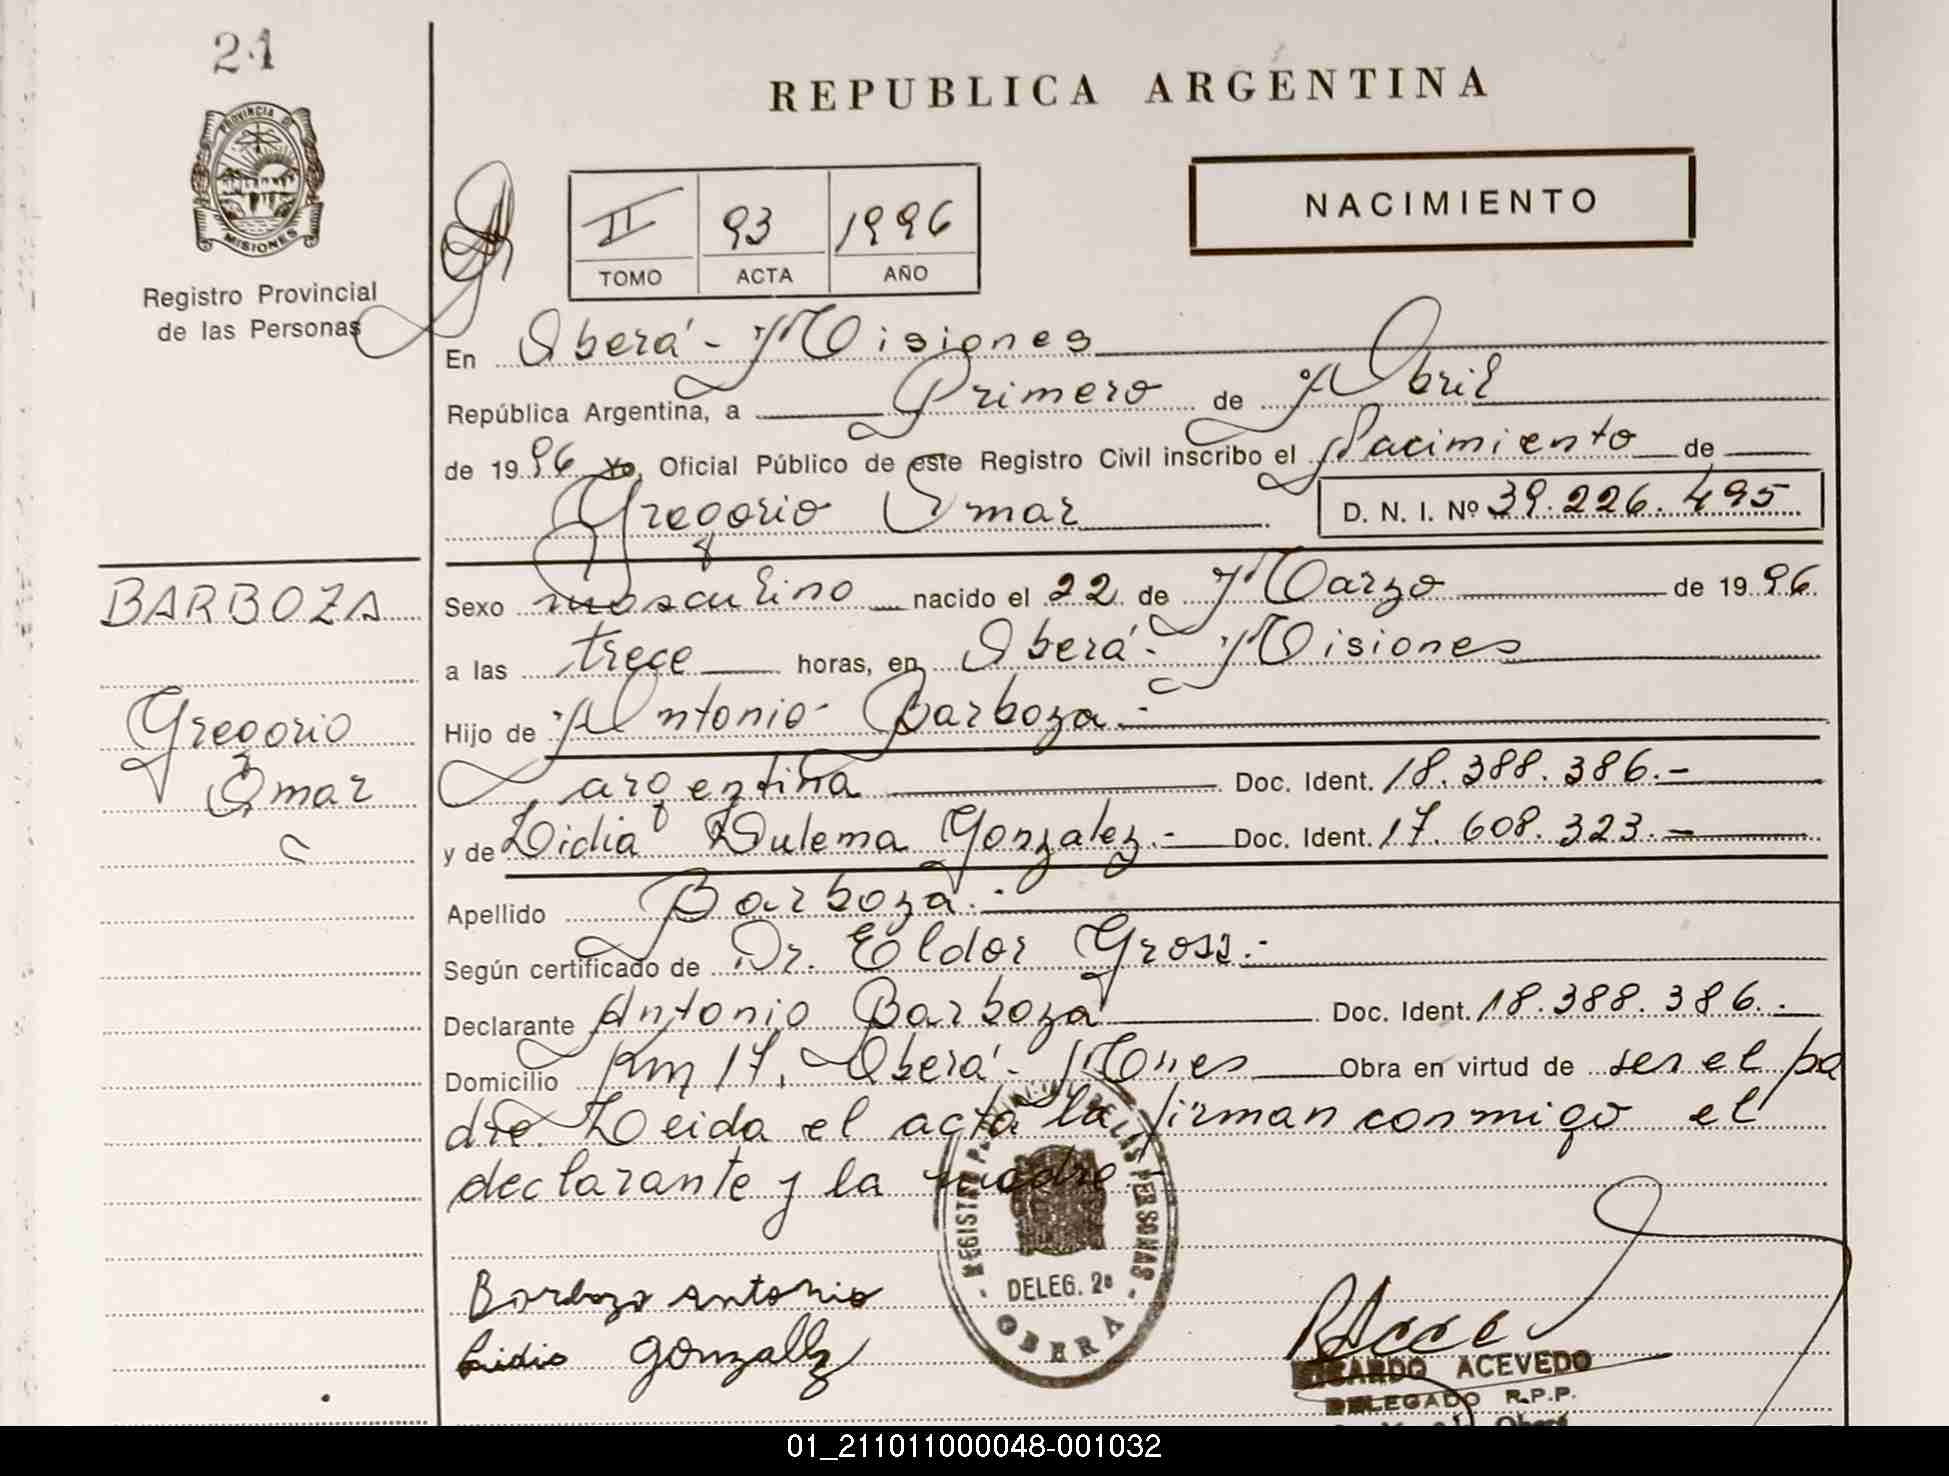 21
PROVINCIA D
MISIONES
Registro Provincial
de las Personas
REPUBLICA ARGENTINA
II 93 1996
TOMO ACTA AÑO
NACIMIENTO
En Oberá - Misiones
República Argentina, a Primero de Abril
de 1996 Yo, Oficial Público de este Registro Civil inscribo el Nacimiento de
Gregorio Omar D. N. I. Nº 39.226.495
BARBOZA
Gregorio
Omar
Sexo masculino nacido el 22 de Marzo de 1996
a las trece horas, en Oberá - Misiones
Hijo de Antonio Barboza.-
argentina Doc. Ident. 18.388.386.-
y de Lidia Zulema Gonzalez.- Doc. Ident. 17.608.323.-
Apellido Barboza.-
Según certificado de Dr. Eldor Gross.-
Declarante Antonio Barboza Doc. Ident. 18.388.386.-
Domicilio Km 17, Oberá - Mnes Obra en virtud de ser el pa
dre. Leida el acta la firman conmigo el
declarante y la madre
DELAS PERSONAS
DELEG. 2ª
OBERA
Barboza Antonio
Lidia Gonzalez
RICARDO ACEVEDO
DELEGADO R.P.P.
01_211011000048-001032